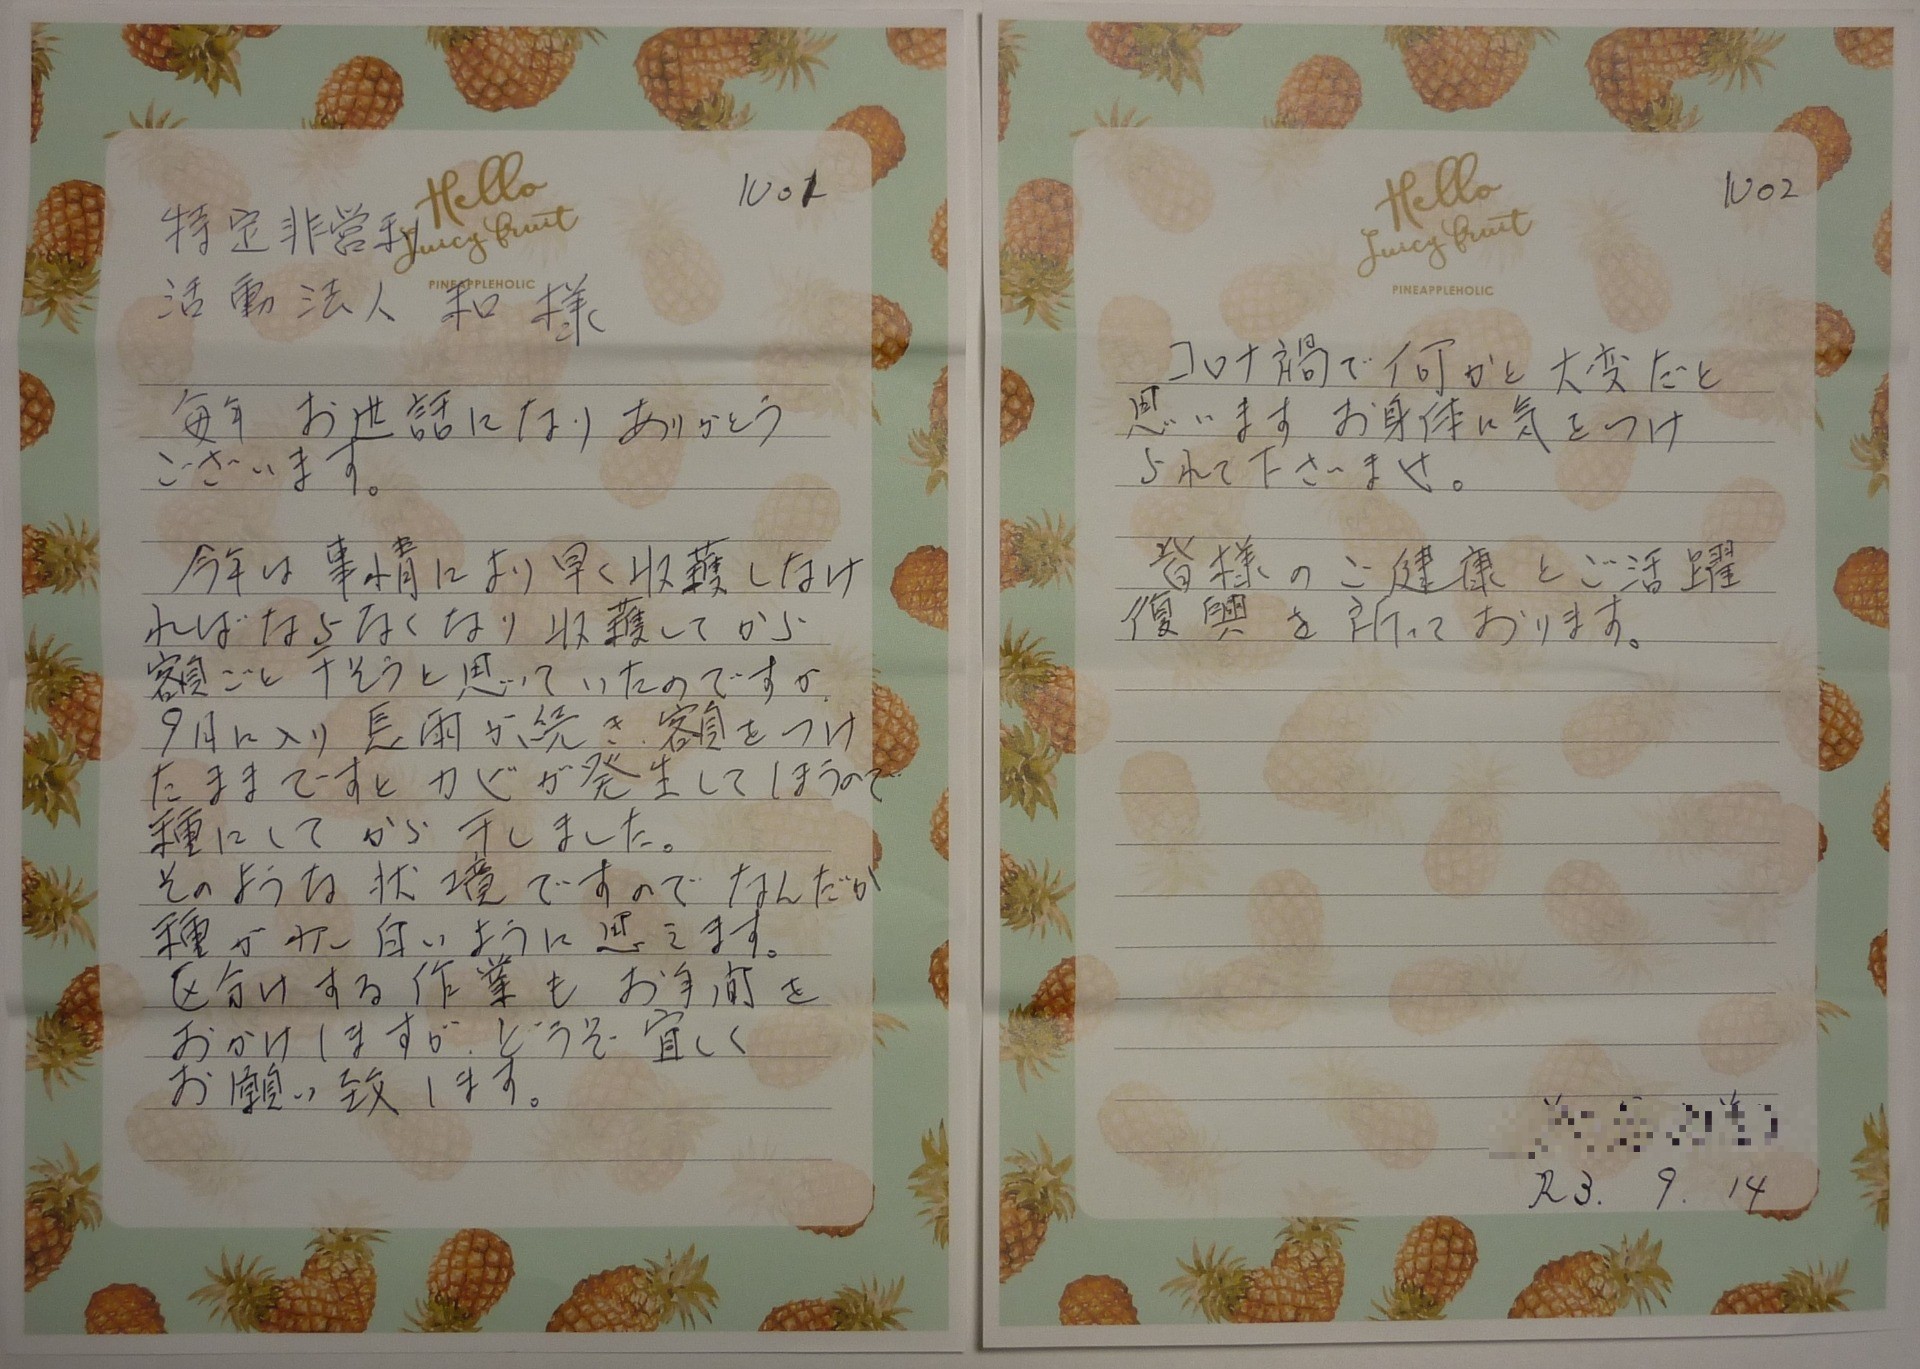 Hello
Juicy fruit
PINEAPPLEHOLIC
No1
特定非営利
活動法人 和 様
毎年 お世話になり ありがとう
ございます。
今年は 事情により 早く収穫しなけ
ればならなくなり 収穫してから
額ごと 干そうと思っていたのですが、
9月に入り 長雨が続き、額をつけ
たままですと カビが発生してしまうので
種にしてから 干しました。
そのような 状境ですので なんだか
種が 白いように 思えます。
区分けする 作業も お手間を
おかけしますが、どうぞ 宜しく
お願い致します。
Hello
Juicy fruit
PINEAPPLEHOLIC
No2
コロナ禍で 何かと 大変だと
思います お身体に気をつけ
られて下さいませ。
皆様の ご健康とご活躍
復興を 祈っております。
R3. 9. 14